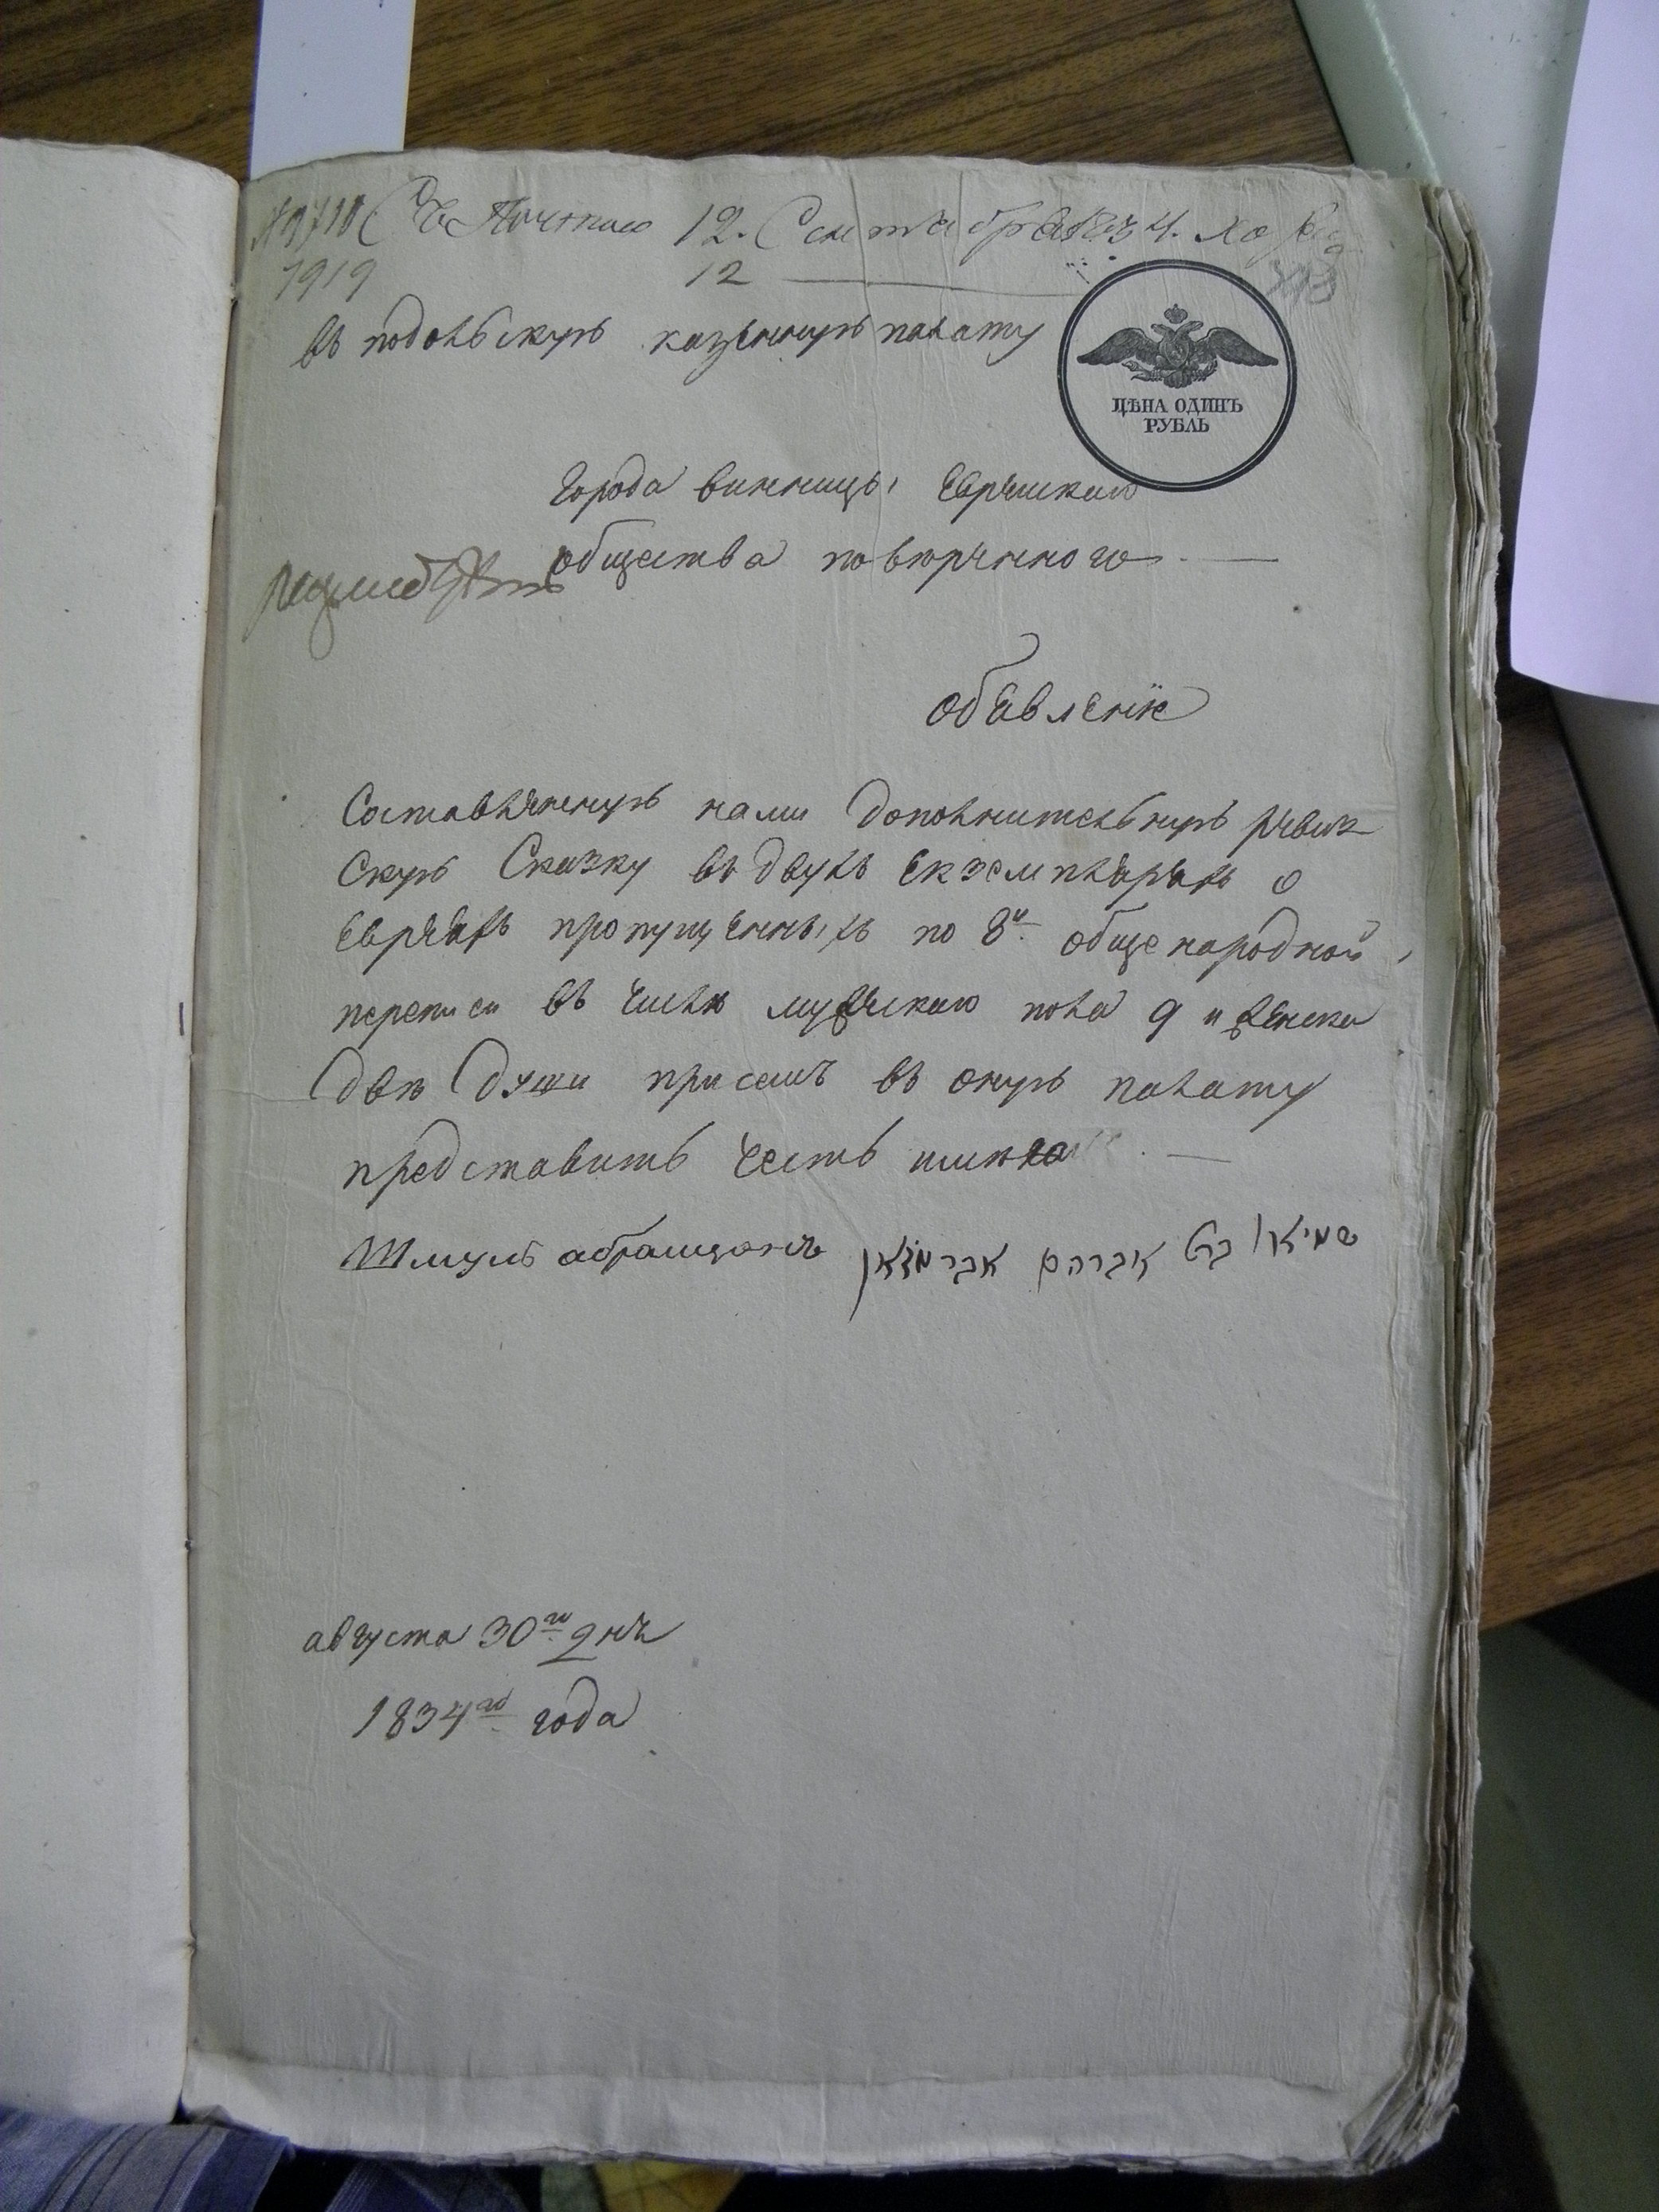 12. Сентября 1834.
1919 12
въ подольскую казенную палату
ЦѢНА ОДИНЪ
РУБЛЬ
Города винницы Еврейскаго
общества повѣренного
обявленіе
Составленную нами дополнительную ревиз
скую Сказку въ двухъ екземплярахъ о
Евреяхъ пропущенныхъ по 8й общенародной
переписи въ числѣ мужескаго пола 9 и женска
двѣ души при семъ въ оную палату
представить честь имѣю
Шмуль абрамзонъ שמואל ברט אברהם אבראמזאן
августа 30го дня
1834го года